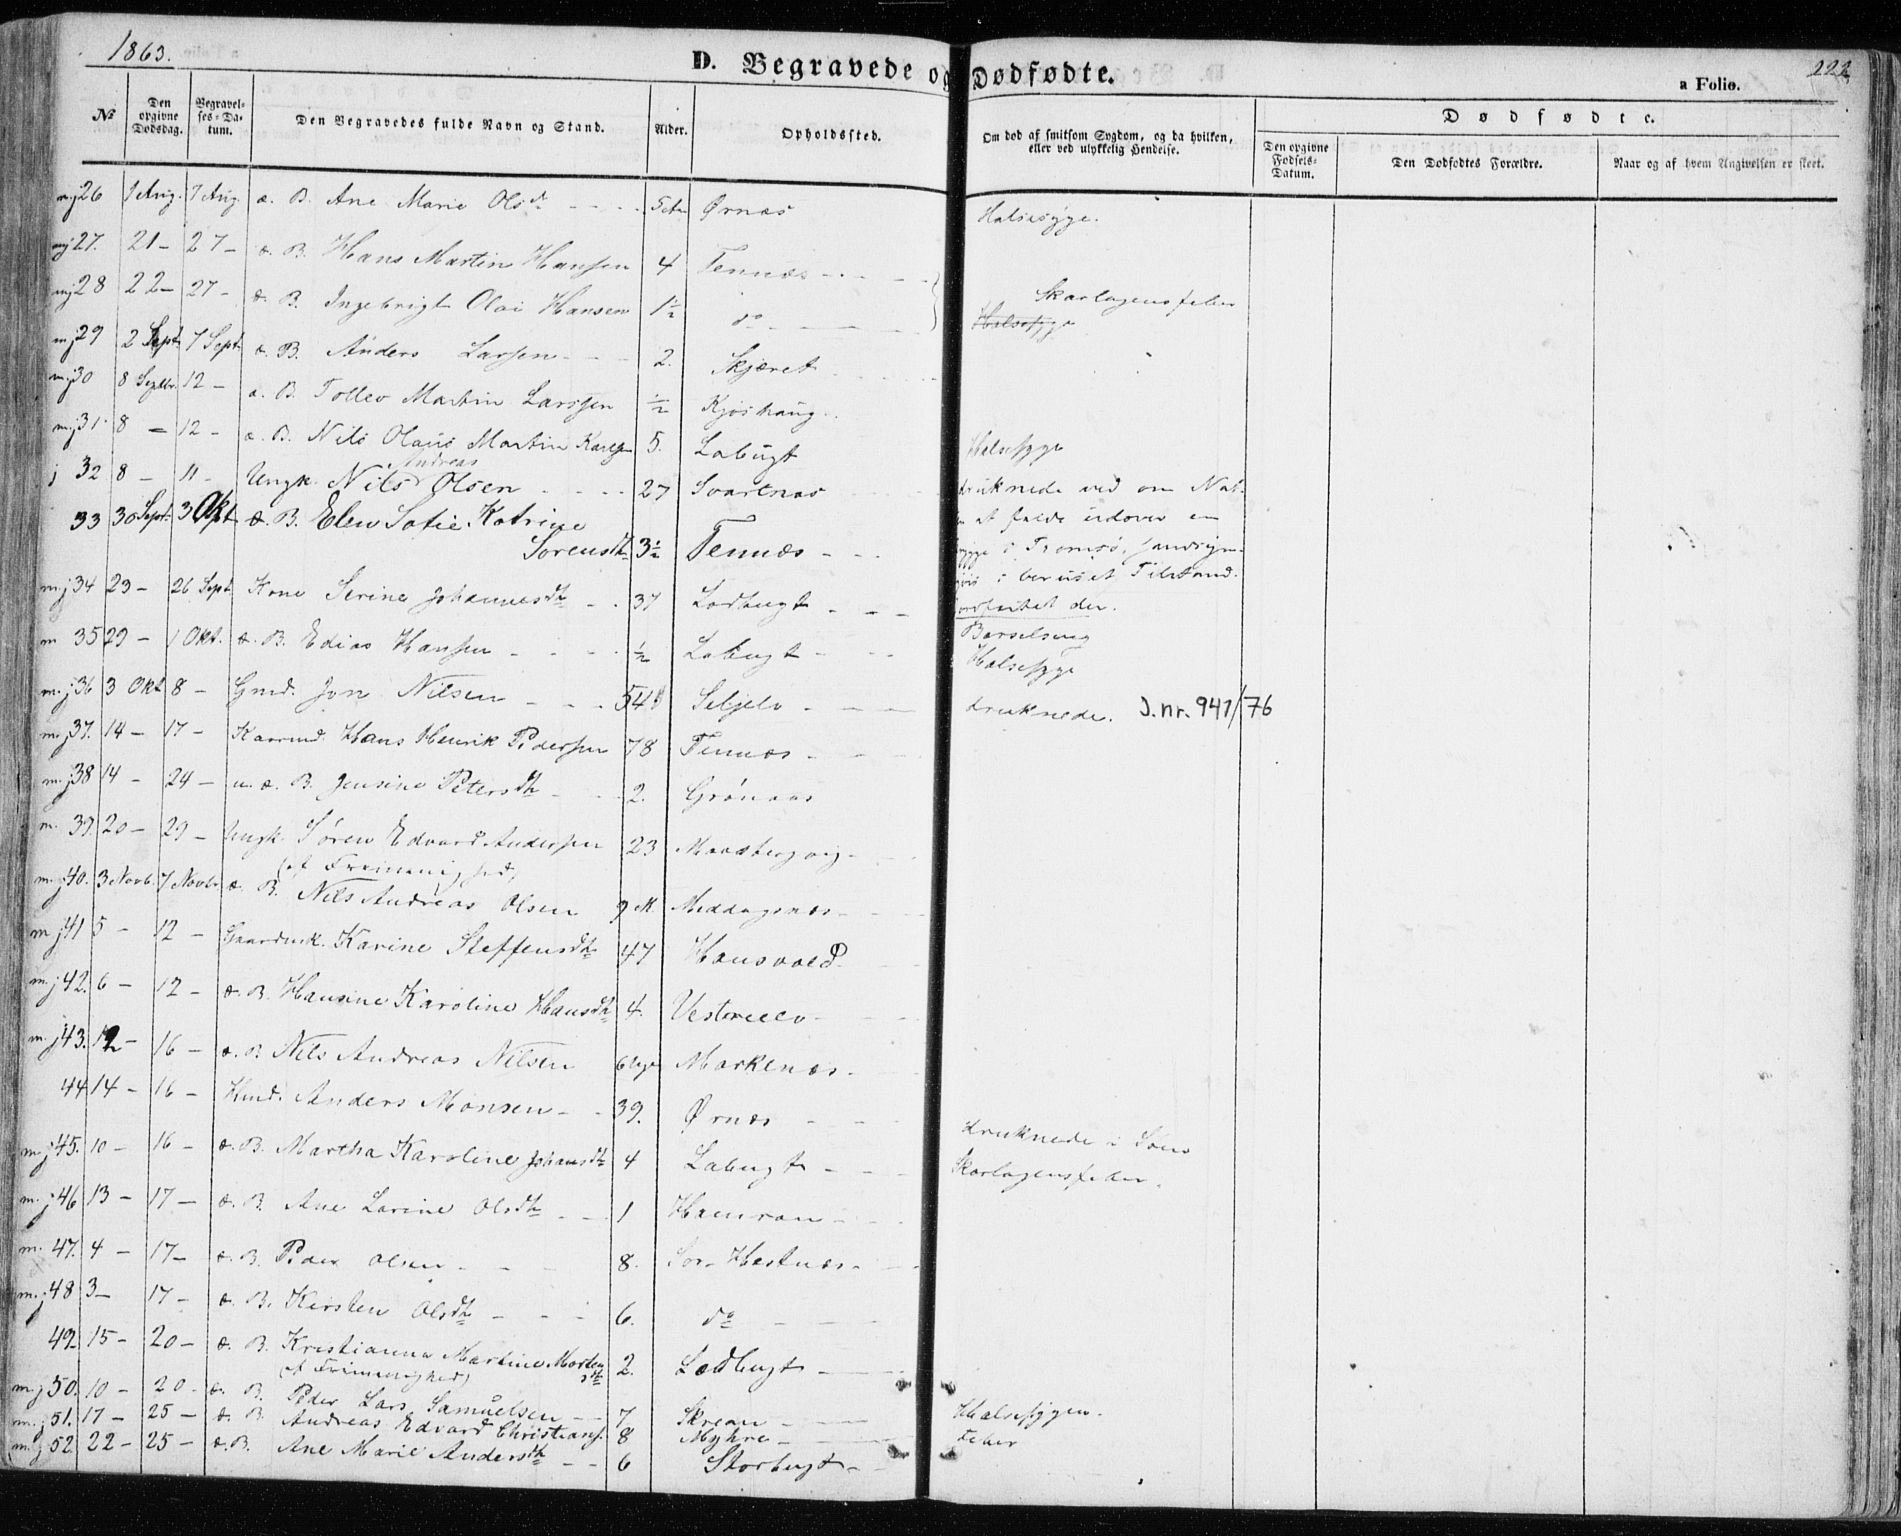 1863.
D. Begravede og Dødfødte.
222
a Folio.
No
Den opgivne Dødsdag.
Begravelses-Datum.
Den Begravedes fulde Navn og Stand.
Alder.
Opholdssted.
Om død af smitsom Sygdom, og da hvilken, eller ved ulykkelig Hendelse.
Dødfødte.
Den opgivne Fødsels-Datum.
Den Dødfødtes Forældre.
Naar og af hvem Angivelsen er skeet.
mj 26 1 Aug. 7 Aug. æ. B. Ane Marie Olsdt Ørnæs Halssyge.
mj 27. 21 - 27 - æ. B. Hans Martin Hansen 4 Tennæs
mj 28 22 - 27 - æ. B. Ingebrigt Olai Hansen 1½ do Skarlagensfeber
Halssyge
mj 29 2 Sept. 7 Sept. æ. B. Anders Larsen 2. Skjæret
mj 30 8 Septbr. 12 - æ. B. Tollev Martin Larssen ½ Kjøshaug
mj 31 8 - 12 - æ. B. Nils Olaus Martin Karlsen 5. Labugt Halssyge
j 32 8 - 11 - Ungk. Nils Andreas Olsen 27 Svartnæs druknede ved om Nat-
33 30 Sept. 3 Okt æ. B. Elen Sofie Katrine at falde udover en
Sørensdt 3½ Tennæs i Tromsø,
i beruset Tilstand.
mj 34 23 - 26 Sept Kone Serine Johannesdt 37 Lodbugt
m 35 29 - 1 Okt. æ. B. Edias Hansen ½ Labugt Barselseng
Halssyge
m. j 36 3 Okt 8 - Gmd. Jon Nilsen 54 Seljelv druknede. J.nr. 941/76
m. j 37. 14 - 17 - Kaarmd. Hans Henrik Pedersen 78 Tennæs
m. j 38 14 - 24 - u. æ. B. Jensine Petersdt 2. Grønaas
m. 39. 20 - 29 - Ungk. Søren Edvard Andersen 23
m. j 40. 3 Novb. 7 Novbr æ. B. Nils Andreas Olsen 9 M. Middagsnæs
m j 41 5 - 12 - Karine Steffensdt 47 Hansvold
m. j 42. 6 - 12 - æ. B. Hansine Karoline Hansdt 4.
m. j 43. 12 - 16 - æ. B Nils Andreas Nilsen 6 Uger Markenæs
44 14 - 16 - Hmd. Anders Monsen 39. Ørnæs druknede i Søen
m j 45. 10 - 16 - æ. B. Martha Karoline Johansdt 4 Labugt Skarlagensfeber.
m. j 46 13 - 17 - æ. B. Ane Larine Olsdt 1 Hamran
m. 47. 4 - 17 - æ. B. Peder Olsen 8. Sør-Hestnæs
m. j 48 3 - 17 - æ. B. Kirsten Olsdt 6. do
49. 15 - 20 - æ. B. Kristianna Martine Mortensdt 2. Lodbugt
m. j 50. 10 - 20 - æ. B. Peder Lars Samuelsen 7 Skrean Halssygen.
m. j 51. 17 - 25 - æ. B. Andreas Edvard Christians. 8 Myhre
m. j 52 22 - 25 - æ. B. Ane Marie Andersdt 6 Storbugt